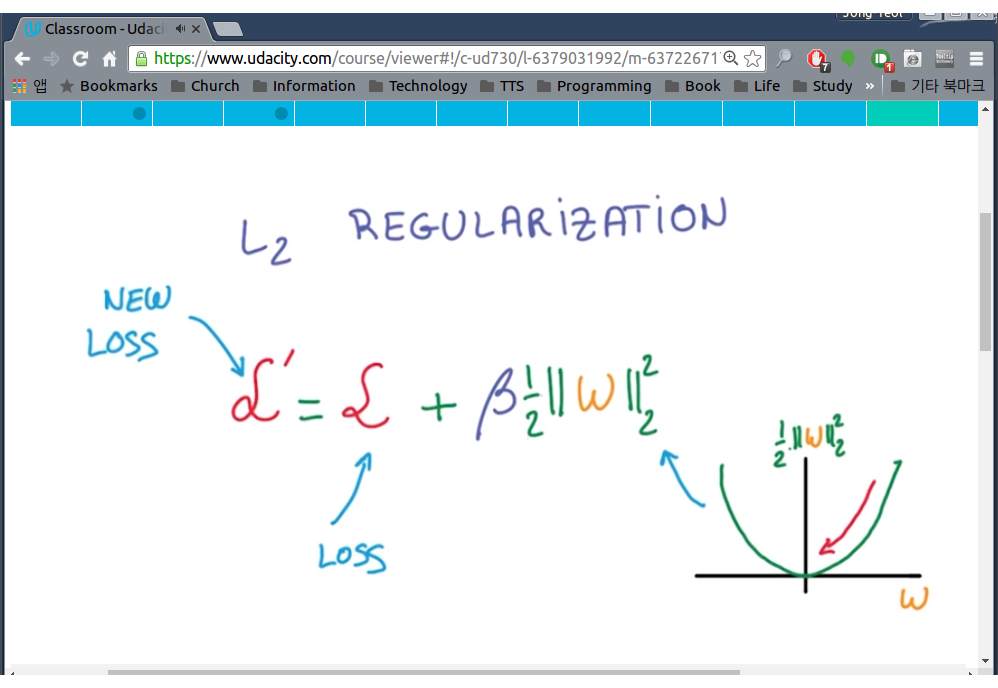 Jong Yeol
Classroom - Udaci
https://www.udacity.com/course/viewer#!/c-ud730/l-6379031992/m-63722671
7
1
앱 Bookmarks Church Information Technology TTS Programming Book Life Study » 기타 북마크
L₂ REGULARIZATION
NEW
LOSS
ℒ' = ℒ + β ½ ||w||₂²
LOSS
½ ||w||₂²
w